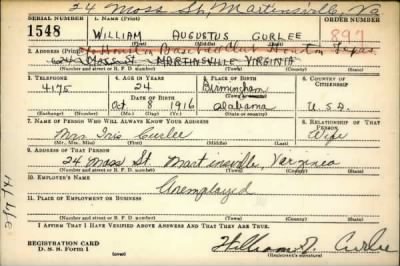 24 Moss St, Martinsville, Va
SERIAL NUMBER
1548
WILLIAM AUGUSTUS CURLEE
ORDER NUMBER
897
c/o Houston Baseball Club Houston, Texas
2. ADDRESS (Print)
24 Moss St. MARTINSVILLE VIRGINIA
(Number and street or R. F. D. number) (Town) (County) (State)
3. TELEPHONE
4175
(Exchange) (Number)
4. AGE IN YEARS
24
DATE OF BIRTH
Oct 8 1916
(Mo.) (Day) (Yr.)
5. PLACE OF BIRTH
Birmingham
(Town or county)
Alabama
(State or country)
6. COUNTRY OF CITIZENSHIP
U.S.A.
7. NAME OF PERSON WHO WILL ALWAYS KNOW YOUR ADDRESS
Mrs Iris Curlee
(Mr., Mrs., Miss) (First) (Middle) (Last)
8. RELATIONSHIP OF THAT PERSON
Wife
9. ADDRESS OF THAT PERSON
24 Moss St. Martinsville, Virginia
(Number and street or R. F. D. number) (Town) (County) (State)
10. EMPLOYER'S NAME
Unemployed
11. PLACE OF EMPLOYMENT OR BUSINESS
(Number and street or R. F. D. number) (Town) (County) (State)
I AFFIRM THAT I HAVE VERIFIED ABOVE ANSWERS AND THAT THEY ARE TRUE.
REGISTRATION CARD
D. S. S. Form 1
(over)
William A. Curlee
(Registrant's signature)